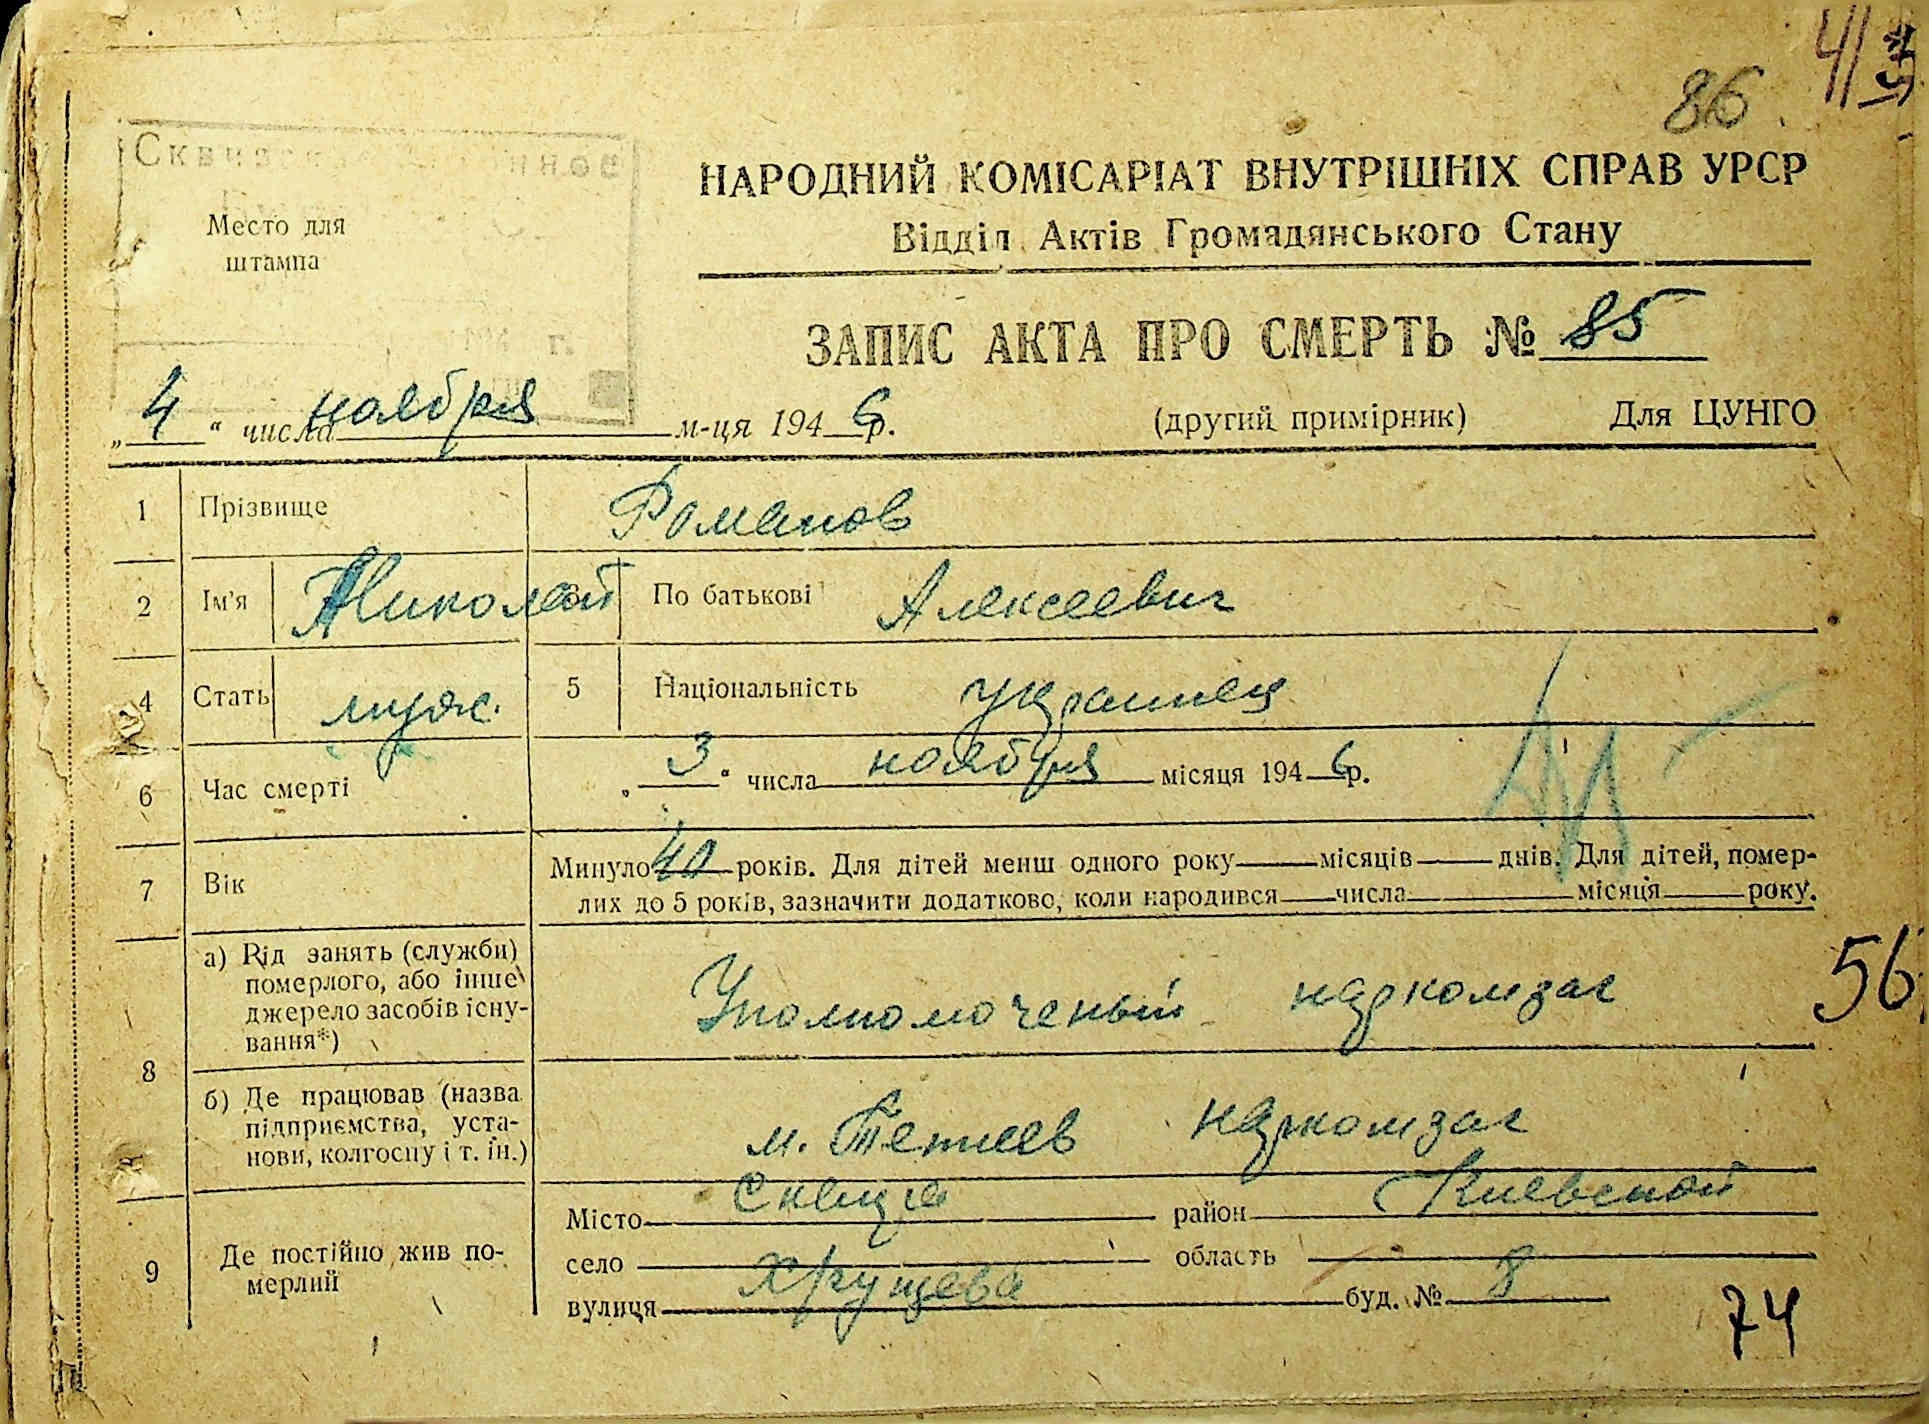 86
41
НАРОДНИЙ КОМІСАРІАТ ВНУТРІШНІХ СПРАВ УРСР
Відділ Актів Громадянського Стану
Место для
штампа
ЗАПИС АКТА ПРО СМЕРТЬ № 85
„4“ числа ноября м-ця 1946 р.
(другий примірник) Для ЦУНГО
1 Прізвище Романов
2 Ім'я Николай 3 По батькові Алексеевич
4 Стать муж. 5 Національність украинец
6 Час смерті „3“ числа ноября місяця 1946 р.
7 Вік Минуло 40 років. Для дітей менш одного року місяців днів. Для дітей, помер-
лих до 5 років, зазначити додатково, коли народився числа місяця року.
8 а) Рід занять (служби)
померлого, або інше
джерело засобів існу-
вання*)
Уполномоченый наркомзаг
56
б) Де працював (назва
підприємства, уста-
нови, колгоспу і т. ін.)
м. Тетиев наркомзаг
9 Де постійно жив по-
мерлий
Місто Сквира район Киевской
село область
вулиця Хрущева буд. № 8
74